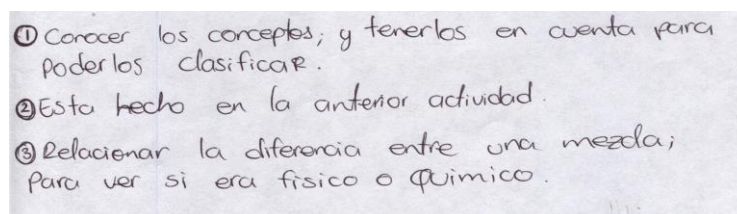 ① Conocer los conceptos; y tenerlos en cuenta para
Poderlos clasificaR.
② Esta hecho en la anterior actividad.
③ Relacionar la diferencia entre una mezcla;
Para ver si era fisico o Quimico.